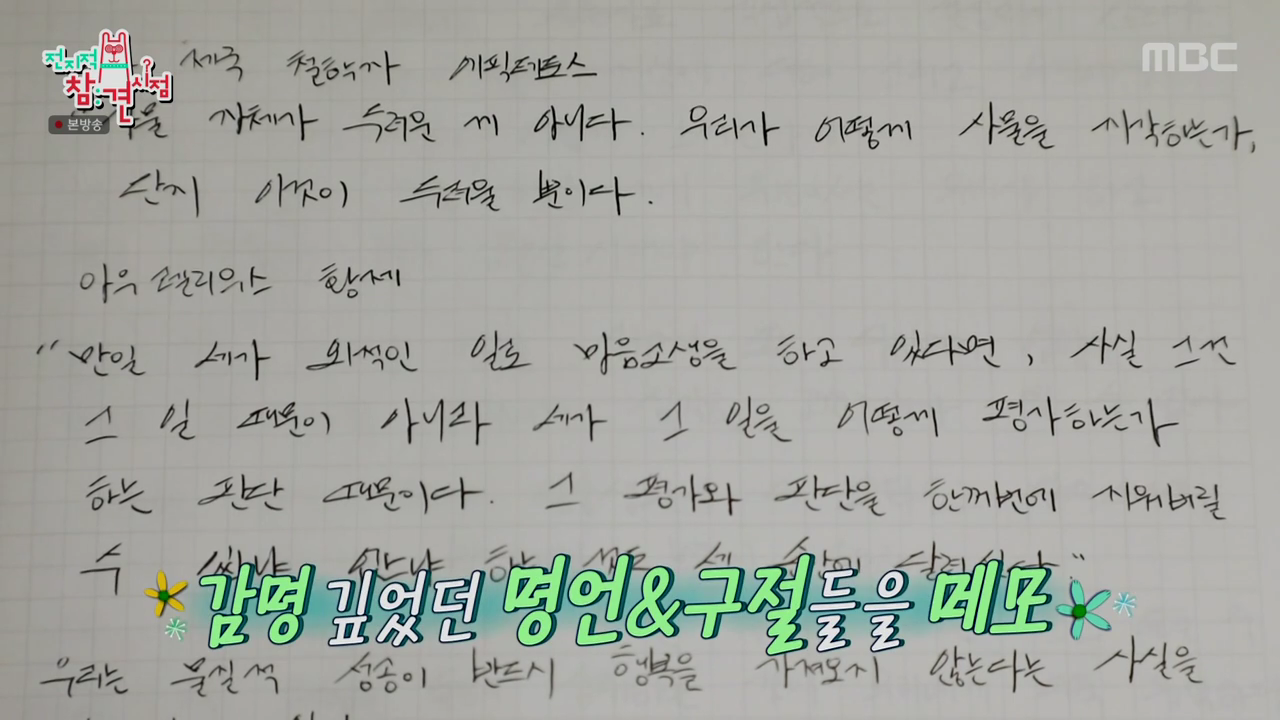 전지적
참견시점
MBC
본방송
제국 철학자 에픽테토스
사물 자체가 두려운 게 아니다. 우리가 어떻게 사물을 지각하는가,
단지 이것이 두려울 뿐이다.
아우렐리우스 황제
"만일 네가 외적인 일로 마음고생을 하고 있다면, 사실 그건
그 일 때문이 아니라 네가 그 일을 어떻게 평가하는가
하는 판단 때문이다. 그 평가와 판단을 한꺼번에 지워버릴
수 있냐 없냐 하는 것도 네 손안에 달려있다"
감명 깊었던 명언&구절들을 메모
우리는 물질적 성공이 반드시 행복을 가져오지 않는다는 사실을